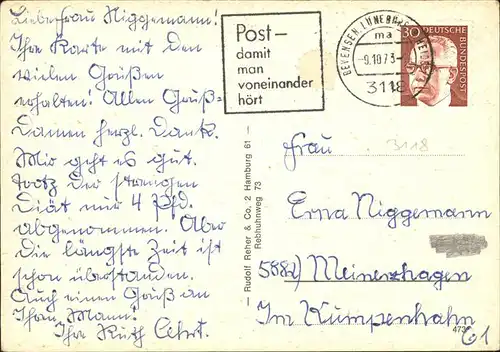 Liebe Frau Niggemann!
Ihre Karte mit den
vielen Grüßen
erhalten! Allen Gruß-
Damen herzl. Dank.
Mir geht es gut.
Trotz der strengen
Diät nur 4 Pfd.
abgenommen. Aber
die längste Zeit ist
schon überstanden.
Auch einen Gruß an
Ihren Mann!
Ihre Ruth
Post-
damit
man
voneinander
hört
BEVENSEN
ma
-9.10.73-
3118
30 DEUTSCHE
BUNDESPOST
— Rudolf Reher & Co. 2 Hamburg 61 —
Rebhuhnweg 73
Frau
3118
Erna Niggemann
5882) Meinerzhagen
Im Kumpenhahn
473
61